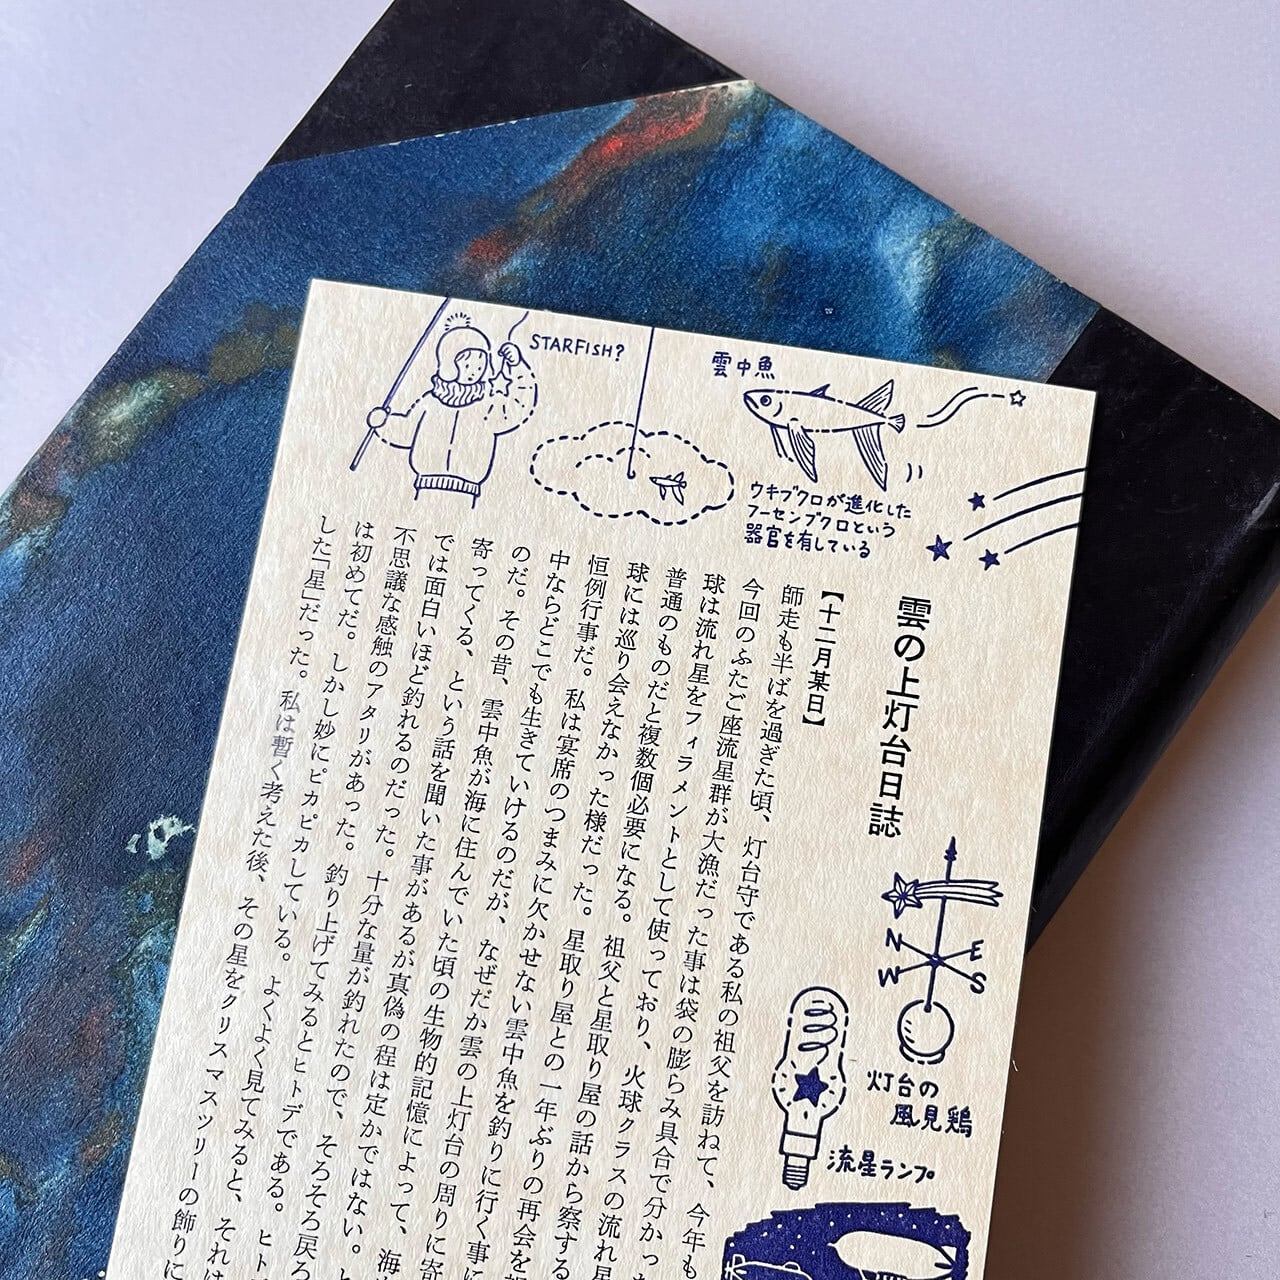 STARFISH?
雲中魚
ウキブクロが進化した
フーセンブクロという
器官を有している
雲の上灯台日誌
【十二月某日】
師走も半ばを過ぎた頃、灯台守である私の祖父を訪ねて、今年も
今回のふたご座流星群が大漁だった事は袋の膨らみ具合で分かった
球は流れ星をフィラメントとして使っており、火球クラスの流れ星
普通のものだと複数個必要になる。祖父と星取り屋の話から察する
球には巡り会えなかった様だった。星取り屋との一年ぶりの再会を
恒例行事だ。私は宴席のつまみに欠かせない雲中魚を釣りに行く事に
中ならどこでも生きていけるのだが、なぜだか雲の上灯台の周りに寄
のだ。その昔、雲中魚が海に住んでいた頃の生物的記憶によって、海
寄ってくる、という話を聞いた事があるが真偽の程は定かではない。と
では面白いほど釣れるのだった。十分な量が釣れたので、そろそろ戻ろ
不思議な感触のアタリがあった。釣り上げてみるとヒトデである。ヒト
は初めてだ。しかし妙にピカピカしている。よくよく見てみると、それは
した「星」だった。私は暫く考えた後、その星をクリスマスツリーの飾りに
N
E
W
S
灯台の
風見鶏
流星ランプ